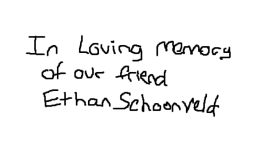 In Loving memory
of our friend
Ethan Schoonveld